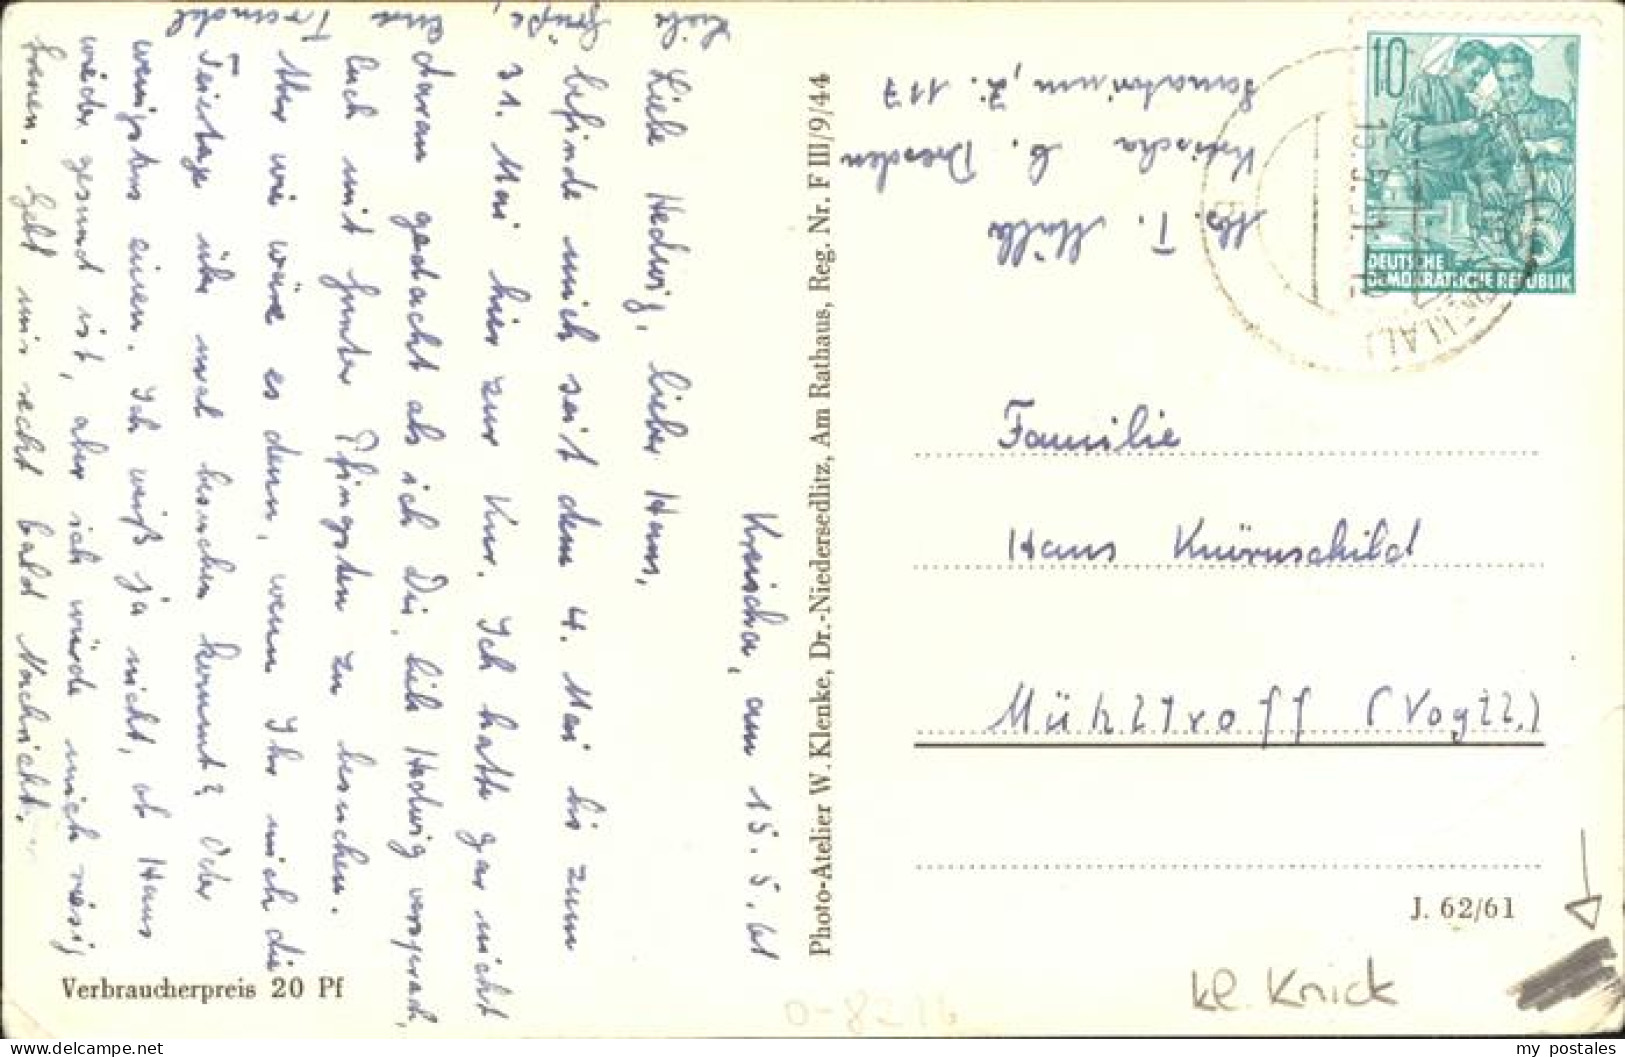 Kreischa, am 15.5.61
Liebe Hedwig, lieber Hans,
befinde mich seit dem 4. Mai bis zum
31. Mai hier zur Kur. Ich hatte gar nicht
daran gedacht als ich Dir, liebe Hedwig versprach,
Euch mit Gunter Pfingsten zu besuchen.
Aber wie wäre es denn, wenn Ihr mich die
Feiertage über mal besuchen kommt? Oder
wenigstens einen. Ich weiß ja nicht, ob Hans
wieder gesund ist, aber ich würde mich riesig
freuen. Gebt mir recht bald Nachricht.
Liebe
Grüße,
Eure
Traudel
Verbraucherpreis 20 Pf
Photo-Atelier W. Klenke, Dr.-Niedersedlitz, Am Rathaus, Reg. Nr. F III/9/44
Abs. T. Müller
Kreischa b. Dresden
Sanatorium, Z. 117
10
DEUTSCHE
DEMOKRATISCHE REPUBLIK
Familie
Hans Knürnschild
Mühltroff (Vogtl.)
J. 62/61
kl. Knick
my postales